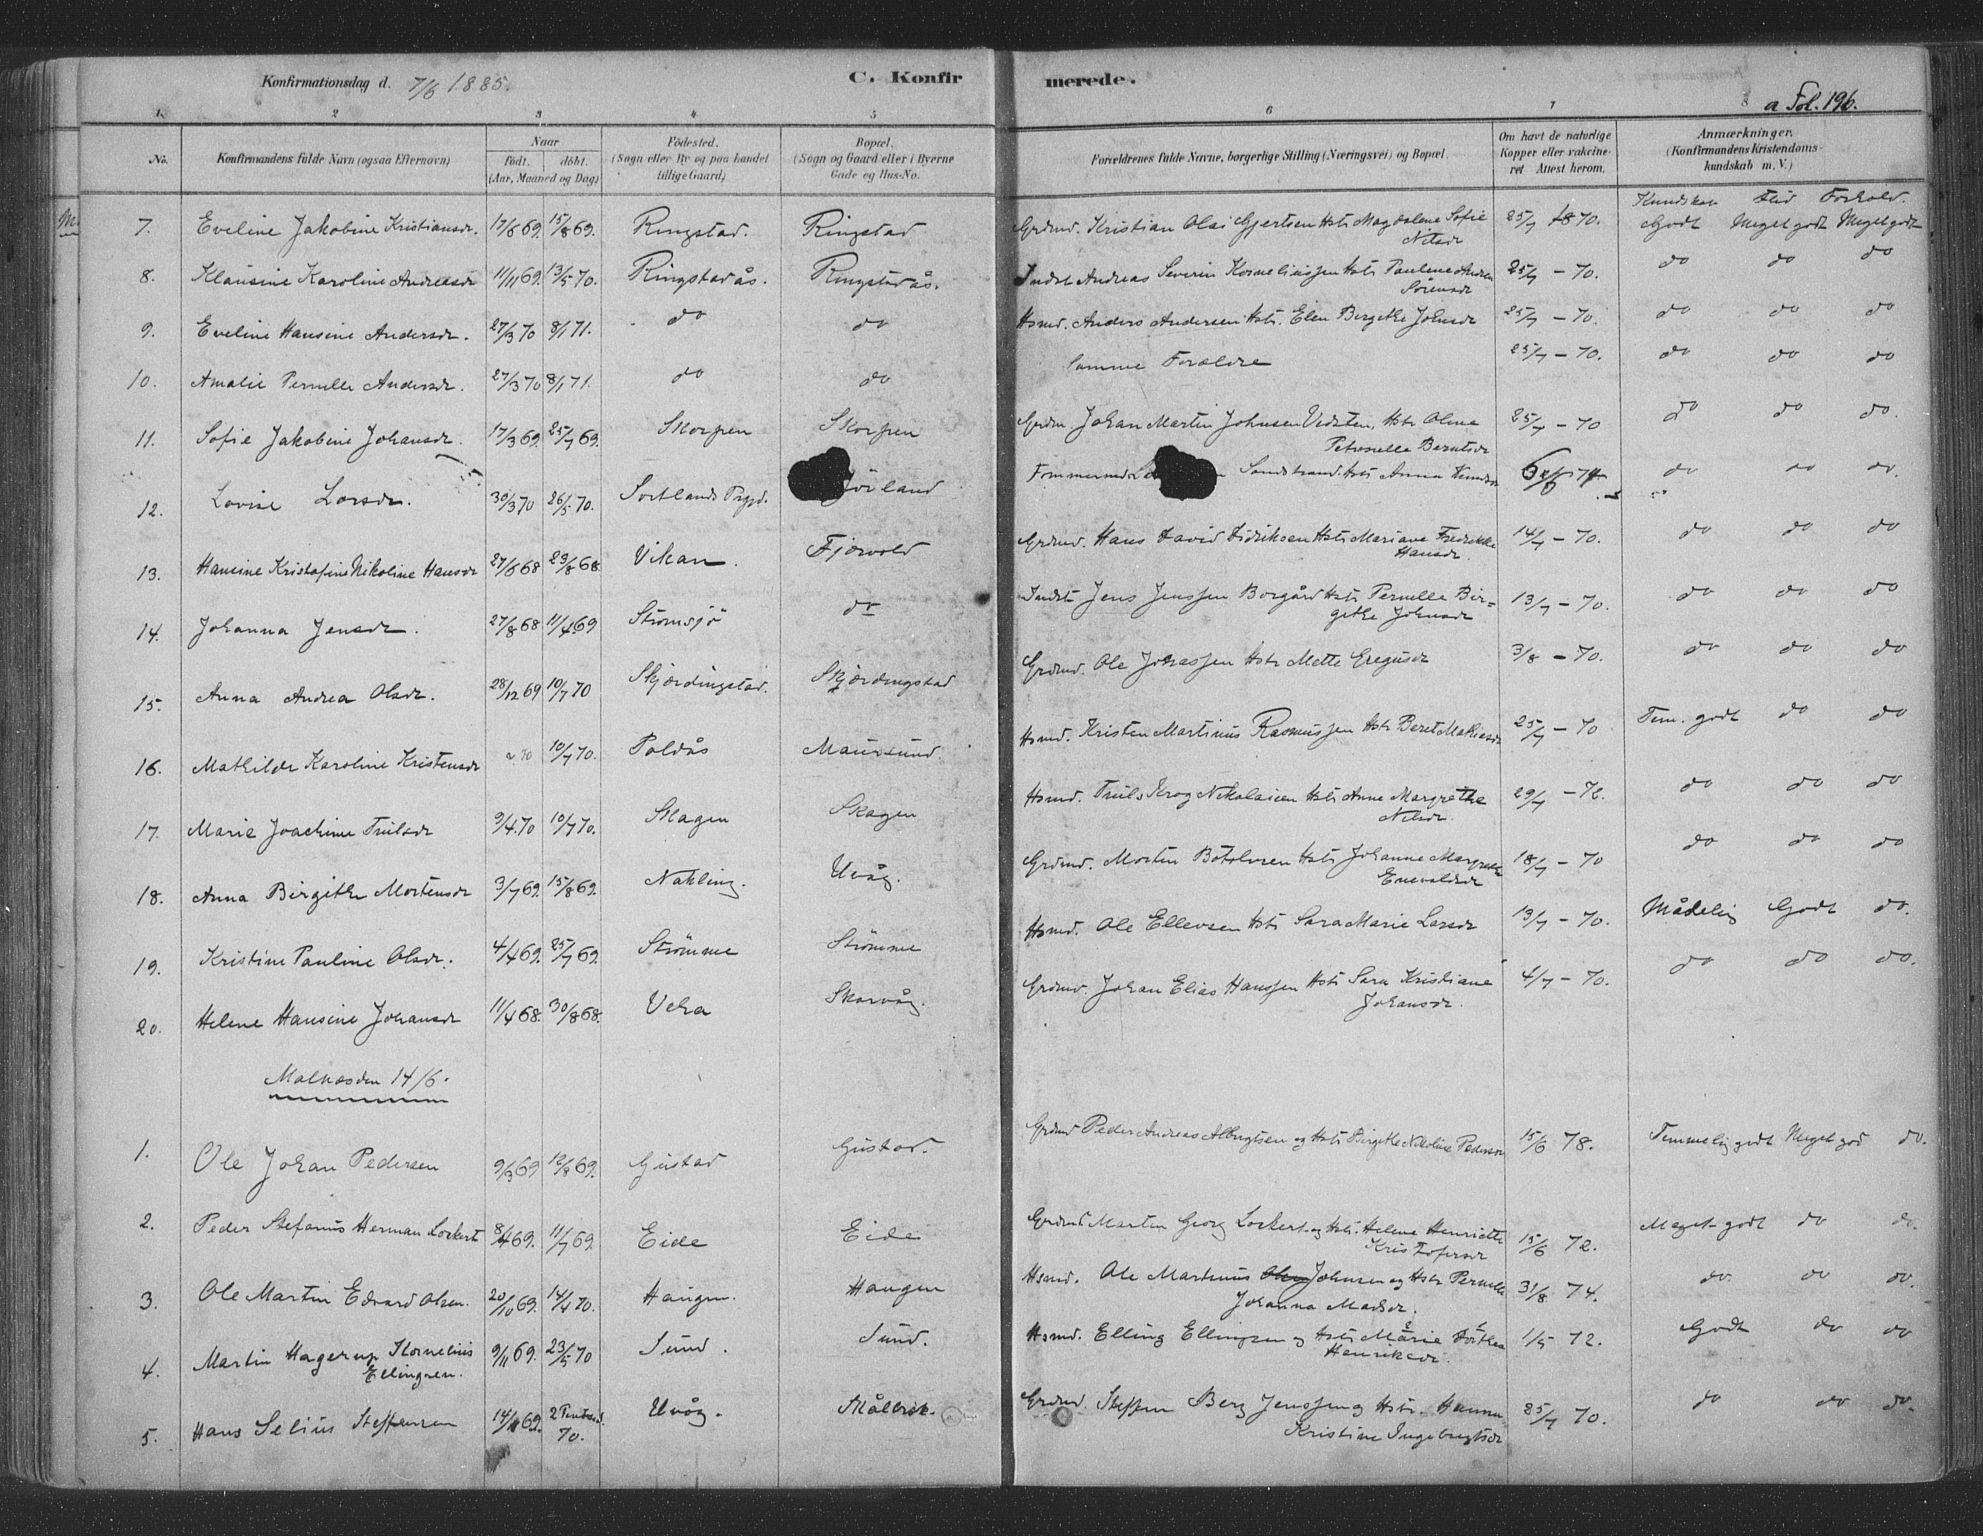 Konfirmationsdag d. 7/6 1885.
C. Konfir merede.
a Fol. 196.
1. 2 3 4 5 6 7 8
No. Konfirmandens fulde Navn (ogsaa Efternavn) Naar født. døbt. (Aar, Maaned og Dag) Fødested. (Sogn eller By og paa Landet tillige Gaard) Bopæl. (Sogn og Gaard eller i Byerne Gade og Hus-No. Forældrenes fulde Navne, borgerlige Stilling (Næringsvei) og Bopæl. Om havt de naturlige Kopper eller vakcineret Attest herom. Anmærkninger. (Konfirmandens Kristendomskundskab m. V.)
Kundskab Flid Forhold.
7. Eveline Jakobine Kristiansdr. 17/6 69. 15/8 69. Ringstad. Ringstad Grdmd. Kristian Olai Gjertsen Hstr Magdalene Sofie Nilsdr 25/7 1870. Godt Meget godt Meget godt
8. Klausine Karoline Andreasdr 11/11 69. 13/5 70. Ringstadås. Ringstadås. Indst Andreas Severin Kornelinssen Hstr Paulene Andrea Sörensdr 25/7 - 70. do do do
9. Eveline Hansine Andersdr. 27/3 70 8/1 71. do do Hsmd. Anders Andersen Hstr. Elen Bergitte Johnsdr 25/7 - 70. do do do
10. Amalie Pernelle Andersdr. 27/3 70 8/1 71. do do Samme Forældre 25/7 - 70. do do do
11. Sofie Jakobine Johansdr. 17/3 69. 25/7 69. Skorpen Skorpen Grdm Johan Martin Johnsen Vedsten, Hstr Oline Petronelle Berntsdr 25/7 - 70 do do do.
12. Lovise Larsdr. 30/3 70 26/5 70. Sortlands Prgjd. Sandstrand Hstr Anna do do do.
13. Hansine Kristofine Nikoline Hansdr 27/6 68 23/8 68. Vikan. Fjærvold Grdmd. Hans David Didriksen Hstr Mariane Fredrikke Hansdr 14/7 - 70. do do do
14. Johanna Jensdr. 27/8 68 11/4 69 Strømsjö do Indst Jens Jenssen Borgård Hstr Pernelle Birgithe Johnsdr 13/7 - 70. do do do
15. Anna Andrea Olsdr. 28/12 69 10/7 70 Skjærdingstad. Skjærdingstad Grdmd. Ole Johnssen Hstr Mette Gregusdr 3/8 - 70. do do do
16. Mathilde Karoline Kristensdr 10/7 70. Poldås Maursund. Hsmd. Kristen Martinus Rasmussen Hstr Beret Mathiasdr 25/7 - 70 Tem. godt do do
17. Marie Joachime Trulsdr 9/4 70 10/7 70. Skagen Skagen Hsmd. Truls Krog Nikolaisen Hstr Anne Margrethe Nilsdr. 29/7 - 72. do do do
18. Anna Birgithe Mortensdr 3/7 69. 15/8 69. Nakling. Uvåg. Grdmd. Morten Botolvsen Hstr Johanne Margrethe Enevoldsdr 18/7 - 70 do do do
19. Kristine Pauline Olsdr. 4/4 69. 25/7 69. Strömme Strömme Hsmd. Ole Ellevsen Hstr Sara Marie Larsdr 13/7 - 70. Mådelig Godt do.
20. Helene Hansine Johansdr 11/4 68. 30/8 68. Veka Skarvåg. Grdmd. Johan Elias Hanssen Hstr Sara Kristiane Johansdr. 4/7 - 70. do do do.
Malnæs den 14/6.
1. Ole Johan Pedersen 9/3 69 12/8 69. Gustad Gustad. Grdmd Peder Andreas Albrigtsen og Hstr Birgithe Nikoline Pedersdr 15/6 78. Temmelig godt Meget god do.
2. Peder Stefanus Herman Lockert 8/4 69. 11/7 69. Eide Eide Grdmd Martin Georg Lockert og Hstr. Helene Henriette Kristofersdr 15/6 72. Meget godt do do.
3. Ole Martin Edvard Olsen. 20/10 69. 14/4 70. Haugen. Haugen Hsmd. Ole Martinus Johnsen og Hstr Pernelle Johanna Madsdr. 31/8 74. do. do do.
4. Martin Hagerup Kornelius Ellingsen. 9/11 69. 23/5 70 Sund. Sund. Hsmd. Elling Ellingsen og Hstr Marie Dorthea Henriksdr. 1/5 72. Godt do do
5. Hans Selius Steffensen 14/11 69. 2 Pintsed. 70. Uvåg. Målbek. Grdmd. Steffen Berg Jenssen og Hstr. Hanna Kristine Ingebrigtsdr 25/7 70. do do do.